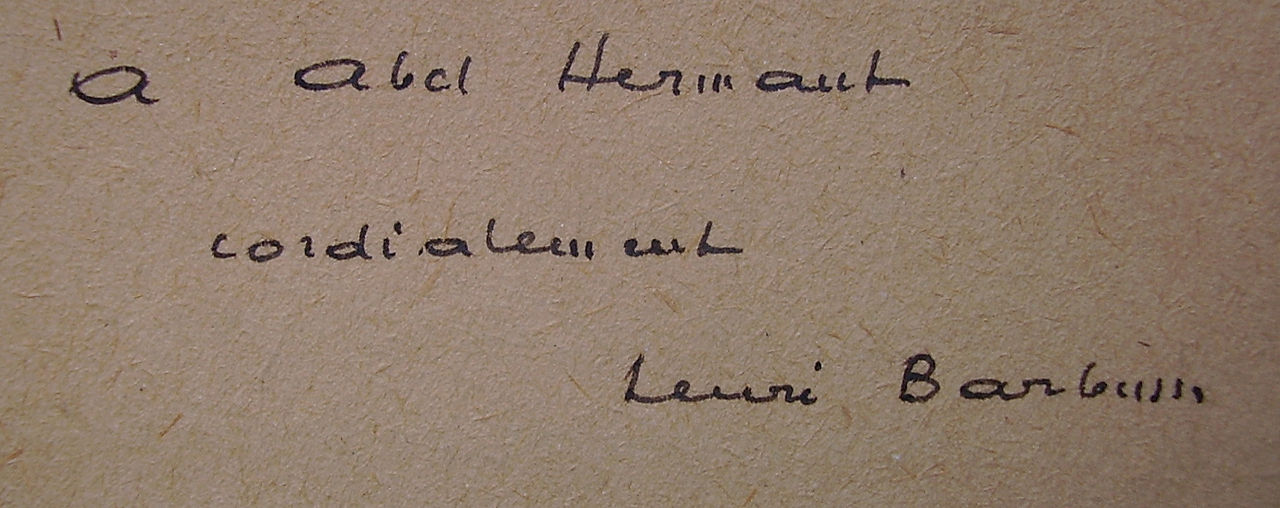 à Abel Hermant
cordialement
Henri Barbusse